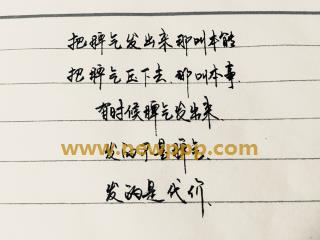 把脾气发出来那叫本能
把脾气压下去，那叫本事.
有时候脾气发出来.
发的不是脾气.
www.newppp.com
发的是代价.